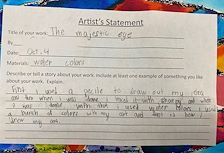 Artist's Statement
Title of your work: The majestic eye
By
Date: Oct. 4
Materials: water colors
Describe or tell a story about your work. Include at least one example of something you like
about your work. Explain.
First I used a pencile to draw out my idea
and then when I was done I traced it with sharpy and when
I was done with that I used water colors I used
a bunch of colors with my art and that is how I
drew my art.